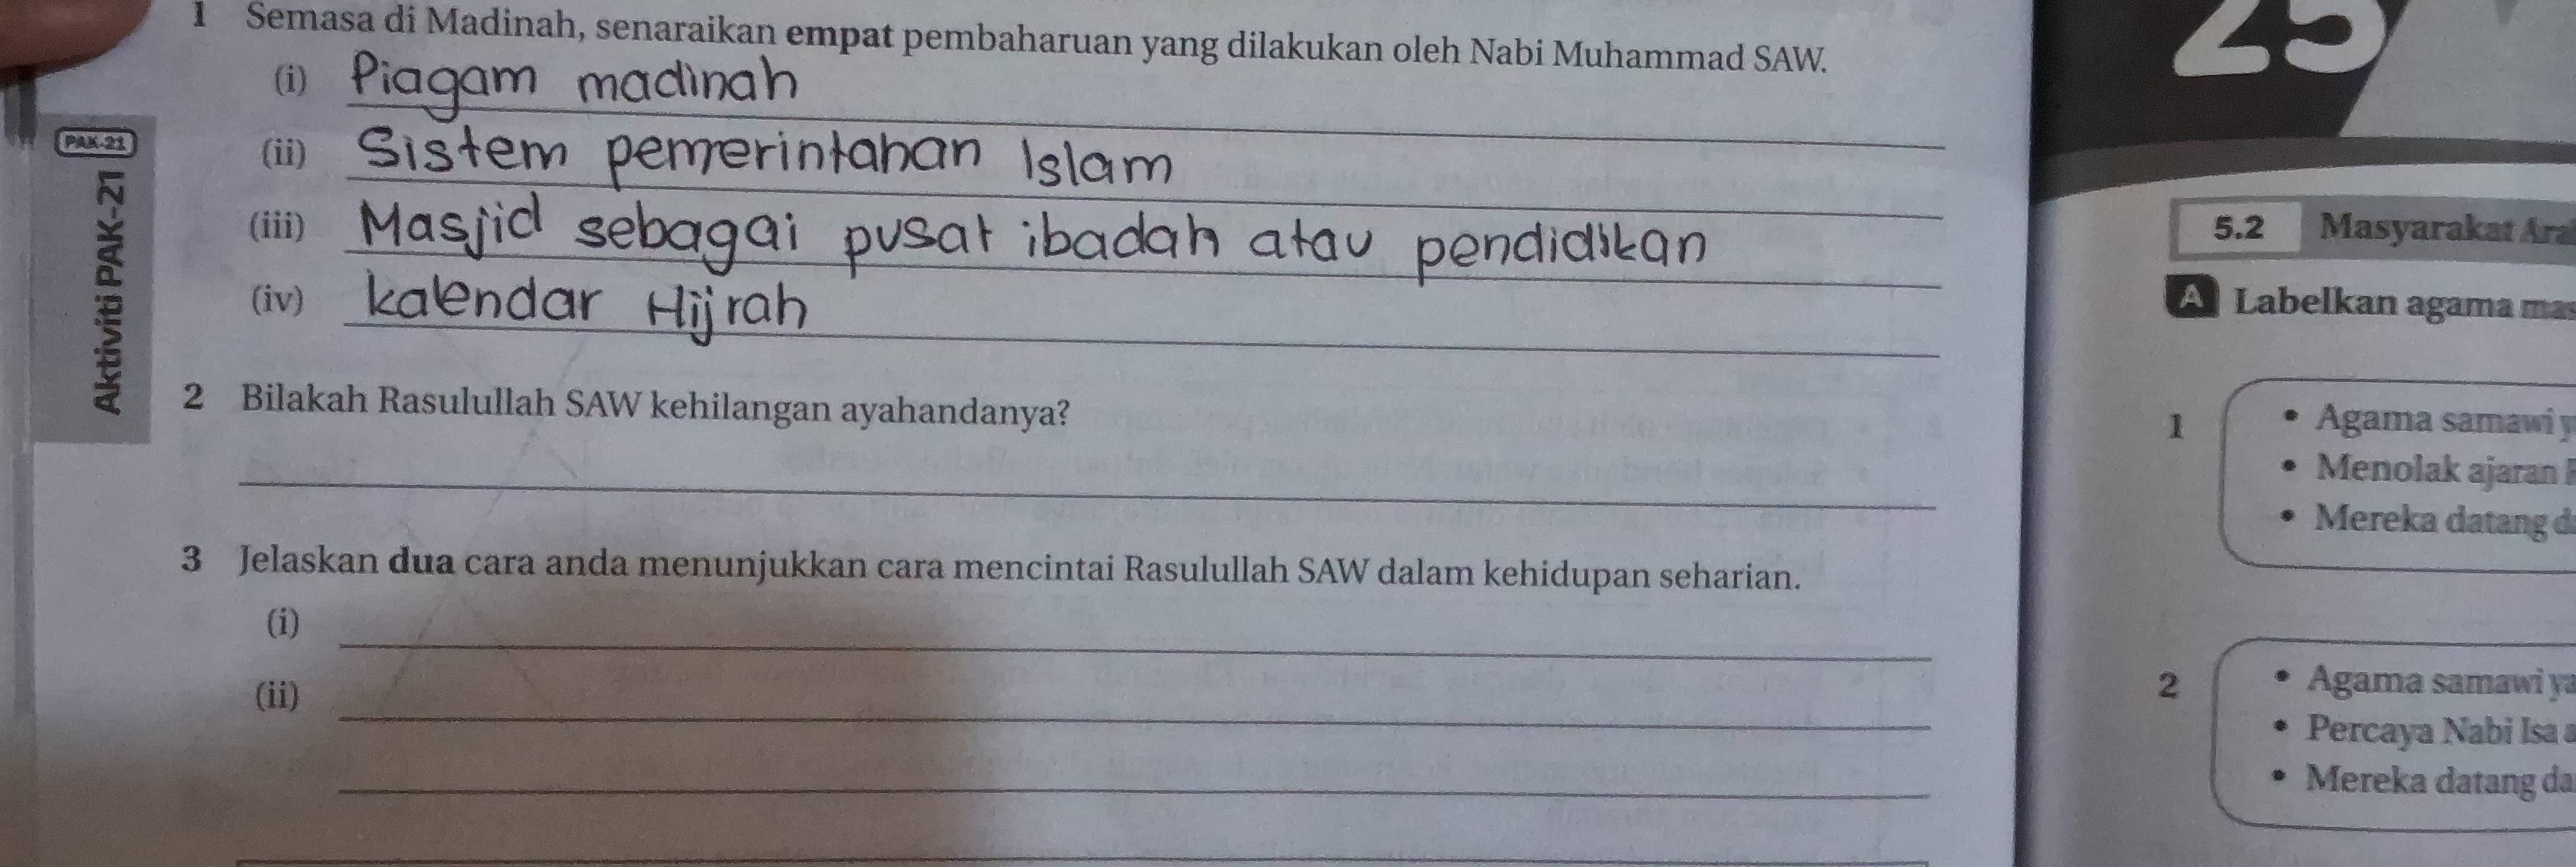 1 Semasa di Madinah, senaraikan empat pembaharuan yang dilakukan oleh Nabi Muhammad SAW.
(i) Piagam madinah
(ii) Sistem pemerintahan Islam
(iii) Masjid sebagai pusat ibadah atau pendidikan
(iv) kalendar Hijrah
PAK-21
Aktiviti PAK-21
2 Bilakah Rasulullah SAW kehilangan ayahandanya?
3 Jelaskan dua cara anda menunjukkan cara mencintai Rasulullah SAW dalam kehidupan seharian.
(i)
(ii)
25
5.2 Masyarakat
A Labelkan agama
1
• Agama samawi
• Menolak ajaran
• Mereka datang
2
• Agama samawi
• Percaya Nabi Isa
• Mereka datang